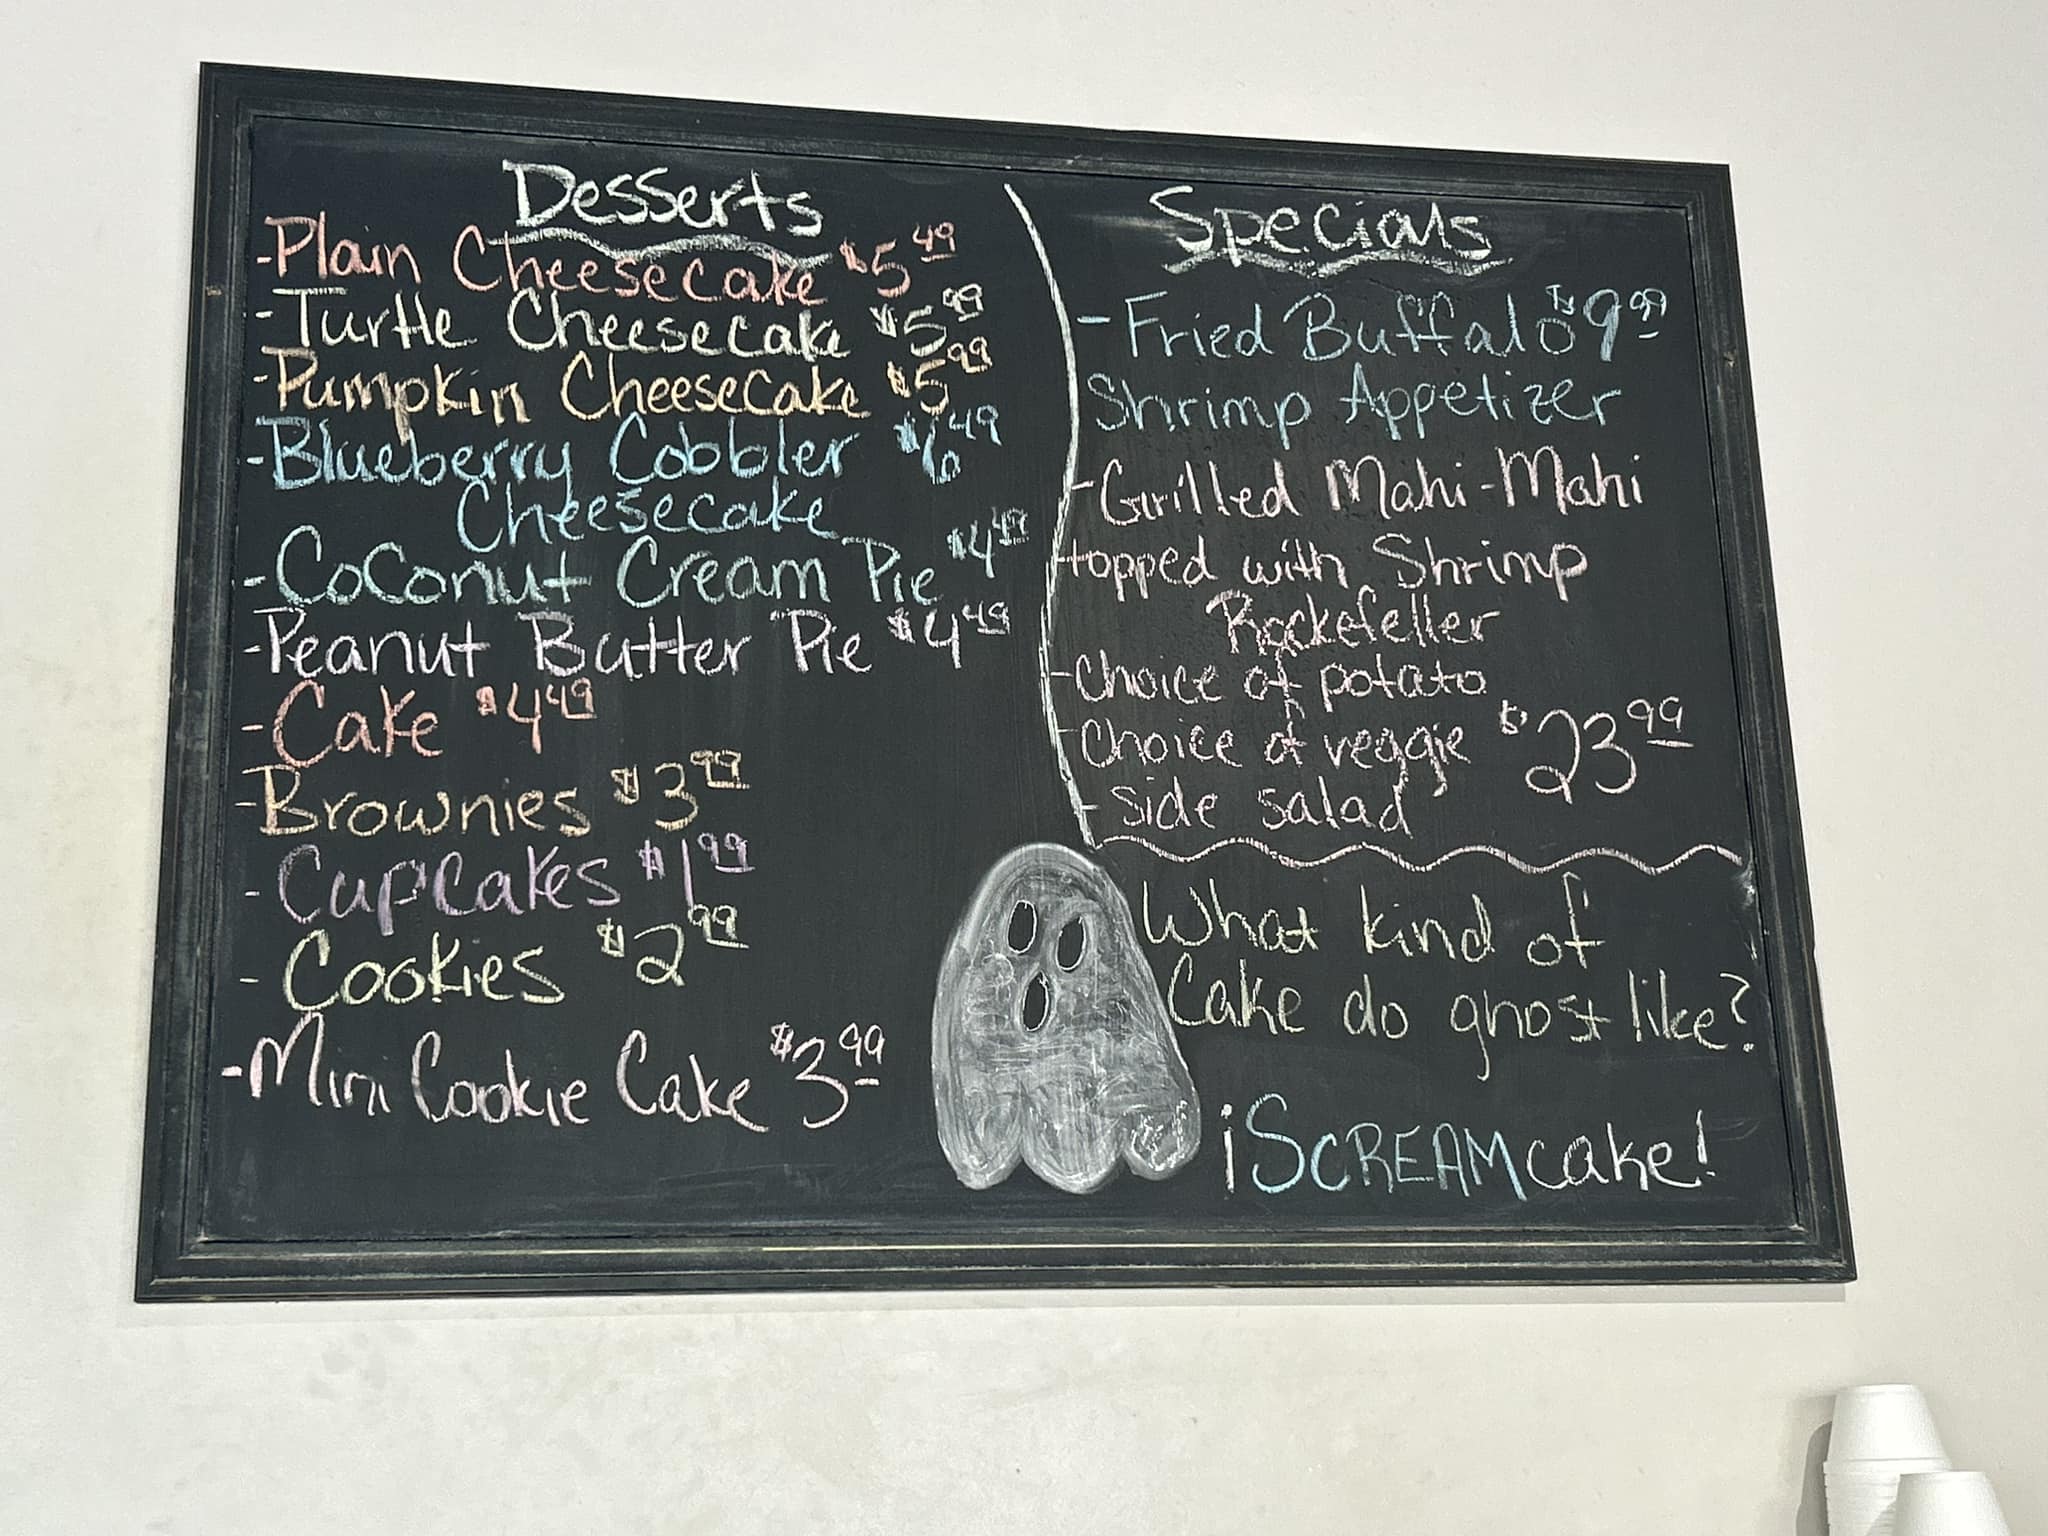 Desserts
-Plain Cheesecake $5.49
-Turtle Cheesecake $5.99
-Pumpkin Cheesecake $5.99
-Blueberry Cobbler $6.49
Cheesecake
-Coconut Cream Pie $4.49
-Peanut Butter Pie $4.49
-Cake $4.49
-Brownies $3.99
-Cupcakes $1.99
-Cookies $2.99
-Mini Cookie Cake $3.99
Specials
-Fried Buffalo $9.99
Shrimp Appetizer
-Grilled Mahi-Mahi
topped with Shrimp
Rockefeller
-Choice of potato
-Choice of veggie $23.99
-Side salad
What kind of
Cake do ghost like?
iSCREAMcake!